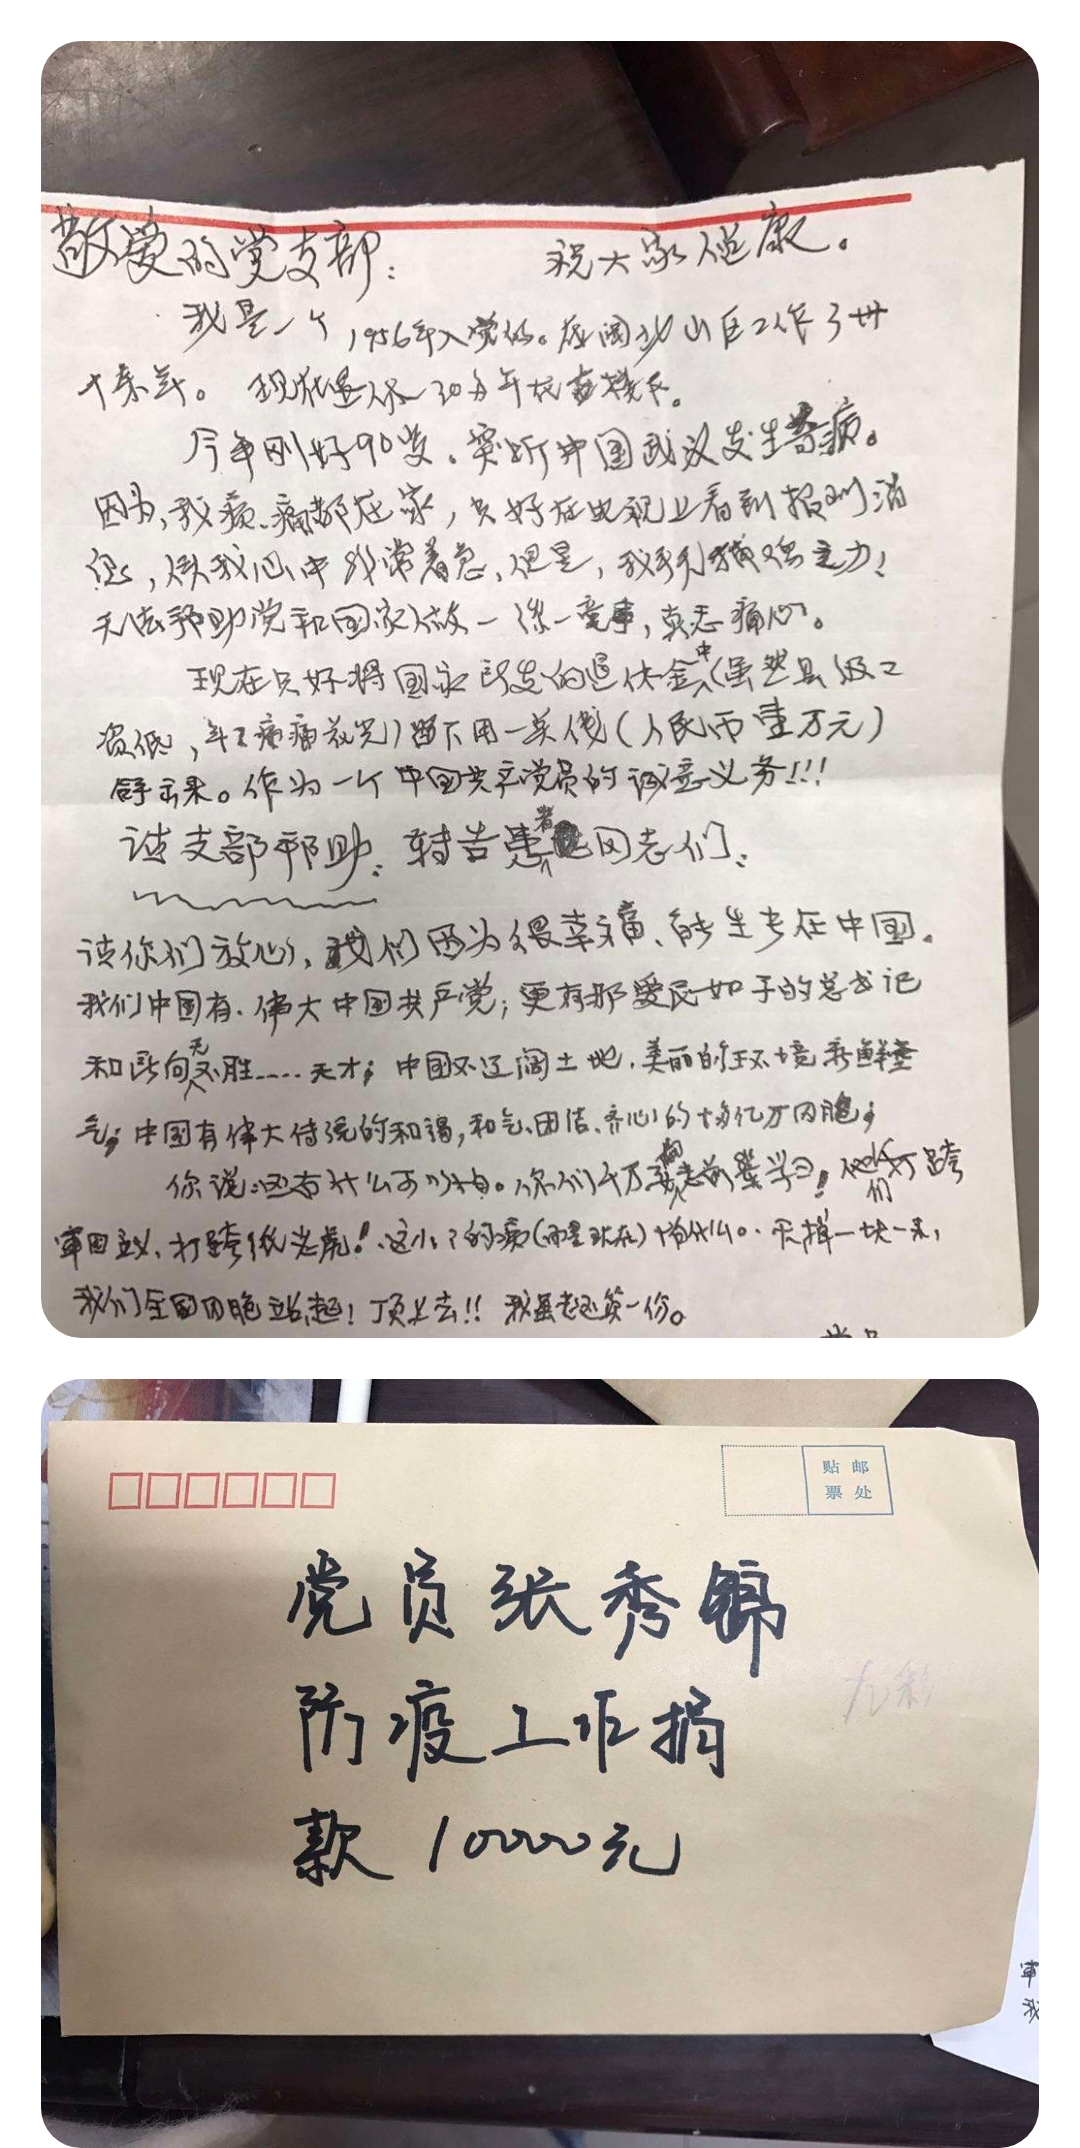 敬爱的党支部： 祝大家健康。
我是一个1956年入党的。在闽北山区工作了卅
十来年。现在退休30多年
今年刚好90岁。突听中国武汉发生
因为，我瘫、痛都在家，只好在电视上看到报刊消
息，使我心中非常着急，但是，我手无缚鸡之力！
无法帮助党和国家做一丝一毫事，真忐痛心。
现在只好将国家所发的退休金中（虽然县级工
资低，年年病痛花光）留下用一类钱（人民币壹万元）
拿出来。作为一个中国共产党员的诚意义务!!!
请支部帮助：转告患者同志们：
请你们放心，我们因为很幸福、能生长在中国。
我们中国有、伟大中国共产党；更有那爱民如子的总书记
和所向无不胜……天才；中国又辽阔土地，美丽的环境新鲜空
气；中国有伟大传统的和谐，和气、团结、齐心的十多亿万同胞；
你说：还有什么可怕。你们千万要向老前辈学习！他们打跨
军国主义、打跨纸老虎！这小小的病（哪里状在）怕什么。灭掉一块一来，
我们全国同胞站起！顶上去!! 我虽老还算一份。
贴 邮
票 处
党员张秀锦
防疫工作捐
款10000元
军
我